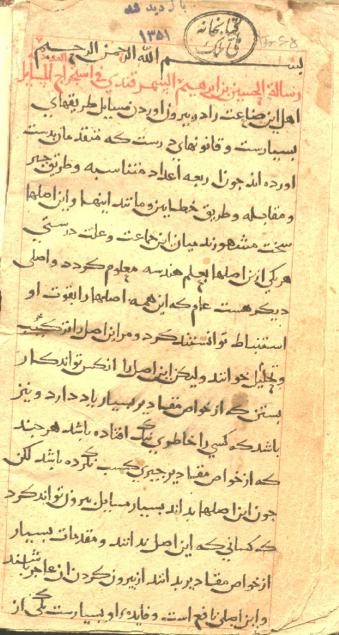 بازدید شد
۱۳۵۱
کتابخانه ملی ملک
بسم الله الرحمن الرحیم
رسالة الحسین بن ابرهیم السمرقندی فی استخراج المسایل
اهل این صناعت را در بیرون اوردن مسایل طریقهای
بسیارست و قانونهای درست که متقدمان بدست
اورده اند جون اربعه اعداد متناسبه و طریق جبر
و مقابله و طریق خطایین و مانند اینها و این اصلها
سخت مشهورند میان این جماعت و علت درستی
هر یکی از این اصلها بعلم هندسه معلوم کردد و اصلی
دیکر هست عام که این همه اصلها را بقوت او
استنباط توانستند کرد و مر این اصل را ترکیب
و تحلیل خوانند و لیکن این اصل را ان کس تواند کار
بستن که از خواص مقادیر بسیار یاد دارد و نیز
باشد که کسی را خاطری نیک افتاده باشد هر جند
که از خواص مقادیر جیزی کسب نکرده باشد لکن
جون این اصلها بداند بسیار مسایل بیرون تواند کرد
که کسانی که این اصل ندانند و مقدمات بسیار
از خواص مقادیر بدانند از بیرون کردن ان عاجز باشند
و این اصلی نافع است و فایدهٔ او بسیارست یکی از